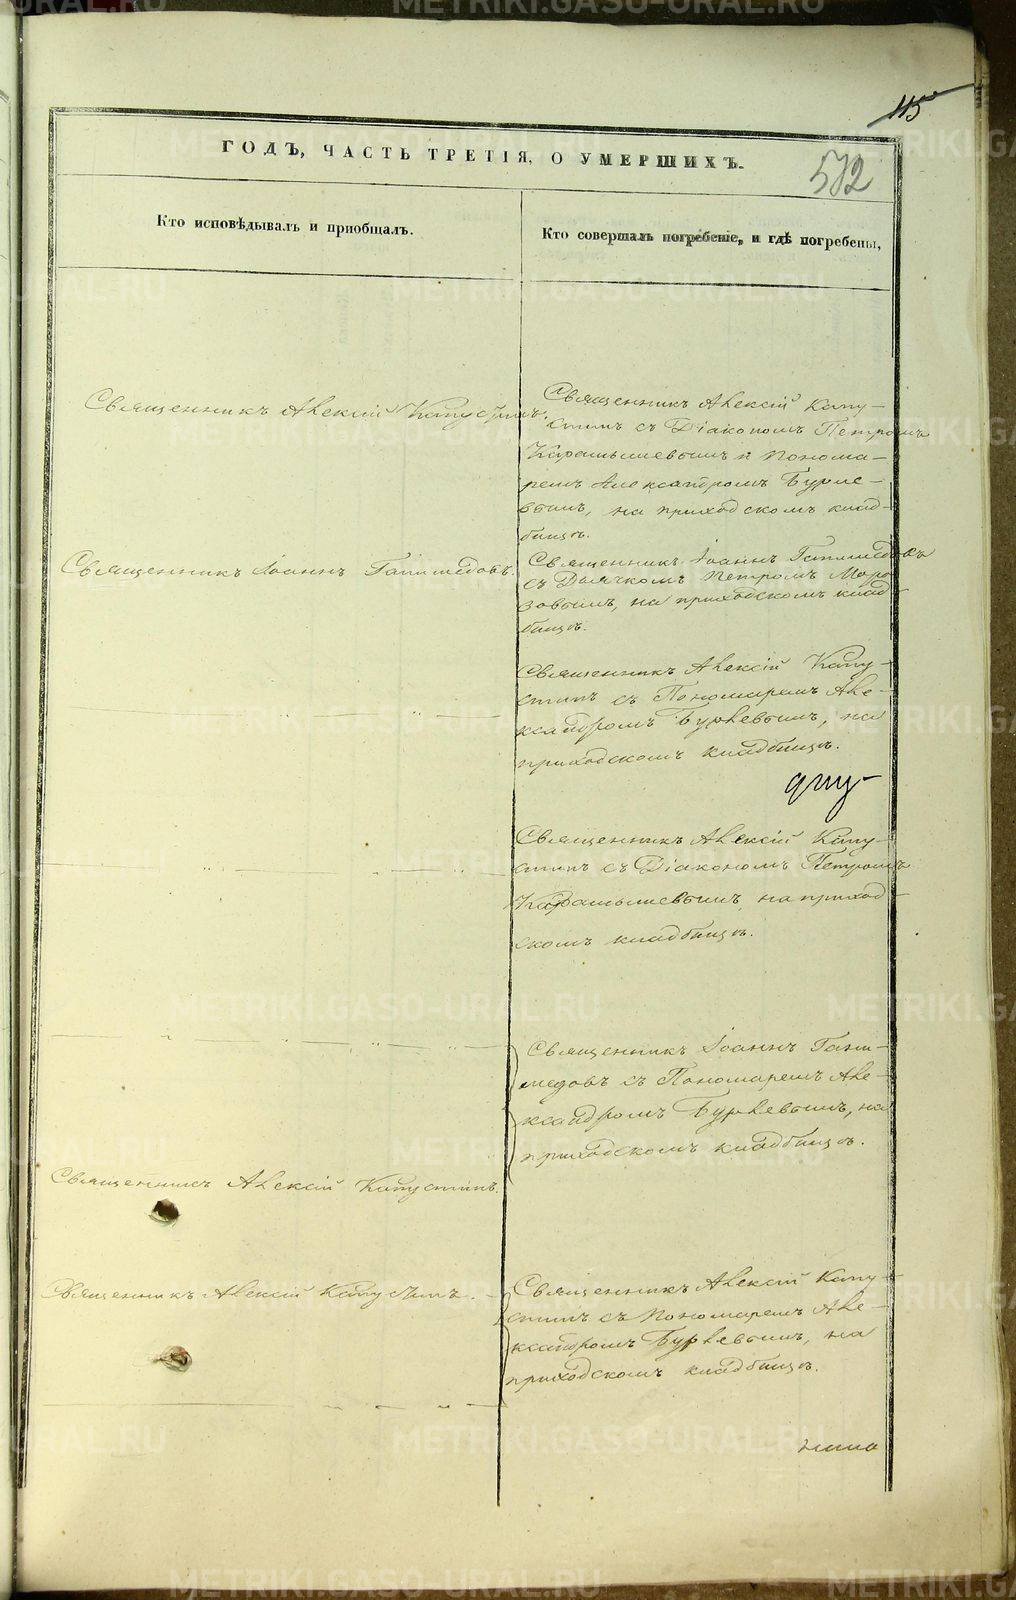 115
572
ГОДЪ, ЧАСТЬ ТРЕТІЯ, О УМЕРШИХЪ.
Кто исповѣдывалъ и пріобщалъ.
Кто совершалъ погребеніе, и гдѣ погребены,
Священникъ Алексій Капустинъ.
Священникъ Алексій Капу-
стинъ съ Діакономъ Петромъ
Карамышевымъ и Понома-
ремъ Александромъ Бурле-
вымъ, на приходскомъ клад-
бищѣ.
Священникъ Іоаннъ Ганимедовъ.
Священникъ Іоаннъ Ганимедовъ
съ Дьячкомъ Петромъ Моро-
зовымъ, на приходскомъ клад-
бищѣ.
Священникъ Алексій Капу-
стинъ съ Пономаремъ Але-
ксандромъ Бурлевымъ, на
приходскомъ кладбищѣ.
Священникъ Алексій Капу-
стинъ съ Діакономъ Петромъ
Карамышевымъ, на приход-
скомъ кладбищѣ.
Священникъ Іоаннъ Гани-
медовъ съ Пономаремъ Але-
ксандромъ Бурлевымъ, на
приходскомъ кладбищѣ.
Священникъ Алексій Капустинъ.
Священникъ Алексій Капустинъ.
Священникъ Алексій Капу-
стинъ съ Пономаремъ Але-
ксандромъ Бурлевымъ, на
приходскомъ кладбищѣ.
METRIKI.GASO-URAL.RU